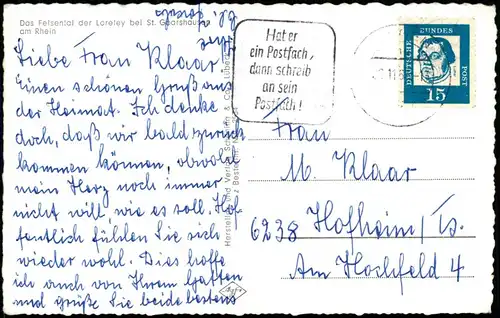 Das Felsental der Loreley bei St. Goarshausen
am Rhein
Liebe Frau Klaar
Einen schönen Gruß aus
der Heimat. Ich denke
doch, daß wir bald zurück
kommen können, obwohl
mein Herz noch immer
nicht will, wie es soll. Hof-
fentlich fühlen Sie sich
wieder wohl. Dies hoffe
ich auch von Ihrem Gatten
und grüße Sie beide bestens
Ihre
Hat er
ein Postfach,
dann schreib
an sein
Postfach!
DEUTSCHE BUNDESPOST
15
Herstellung und Verlag Schöning & Co Lübeck
Frau
M. Klaar
6238 Hofheim/Ts.
Am Hochfeld 4